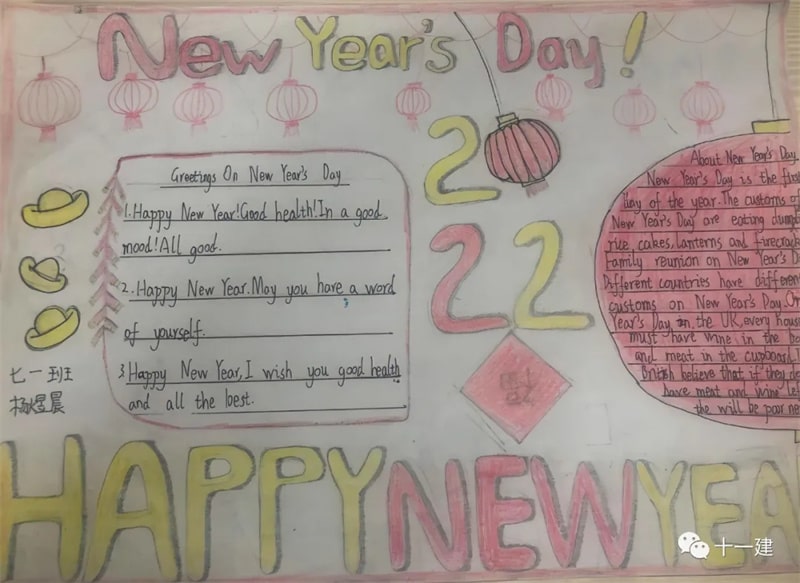 New Year's Day!
Greetings On New Year's Day
1. Happy New Year! Good health! In a good
mood! All good.
2. Happy New Year. May you have a word
of yourself.
3. Happy New Year, I wish you good health
and all the best.
2 22
About New Year's Day
New Year's Day is the first
day of the year. The customs of
New Year's Day are eating
rice cakes, lanterns and
Family reunion on New Year's
Different countries have
customs on New Year's Day. On
Year's Day, in the UK, every
must have wine in the
and meat in the cupboard.
British believe that if they
have meat and wine
the will be poor
七一班
HAPPY NEW YEA
十一建